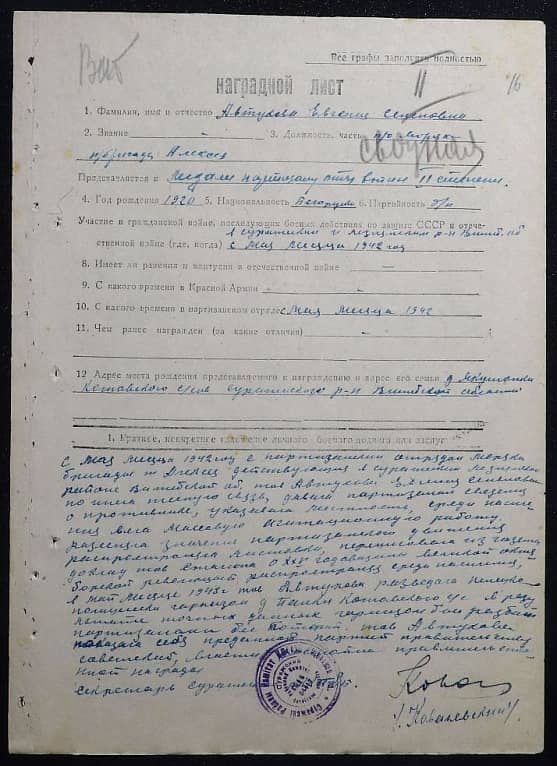 Ваб
Все графы заполнять полностью
11
16
НАГРАДНОЙ ЛИСТ
1. Фамилия, имя и отчество Автухова Евгения Семеновна
2. Звание - 3. Должность, часть п/о
п/бригада Алексея
сводная
Представляется к медали партизану отеч войны II степени.
4. Год рождения 1920 5. Национальность Белоруска 6. Партийность б/п
Участие в гражданской войне, последующих боевых действиях по защите СССР и отече-
в суражском и лезненском р-н Витеб. об
ственной войне (где, когда) с мая месяца 1942 год
8. Имеет ли ранения и контузии в отечественной войне -
9. С какого времени в Красной Армии -
10. С какого времени в партизанском отряде с мая месяца 1942
11. Чем ранее награжден (за какие отличия) -
12 Адрес места рождения представляемого к награждению и адрес его семьи д.
Котовского с/сов суражского р-н Витебской области
1. Краткое, конкретное изложение личного боевого подвига или заслуг
с мая месяца 1942 году с партизанским отрядом
бригады т Алексея действующим в суражском лезненском
районе Витебской об. тов Автухова Евгения Семеновна
тесную связь, давала партизанам сведения
о противнике, указывала местность, среди насе-
ления вела массовую агитационную работу
разъясняла значение партизанского движения
распространяла листовки, переписывала из газеты
доклад тов Сталина о XXV годовщины великой октя
борьской революции распространяла среди населения,
в мае месяце 1943 г тов Автухова разведала немецко
полицейский гарнизон д Котовского с/с в резу
тате точных данных гарнизон был разбит
партизанами без потерь. тов Автухова
показала себя преданной партии правительству
советской власти достойна правительствен
ной награды
секретарь суражского
Ковал
/Ковалевский/.